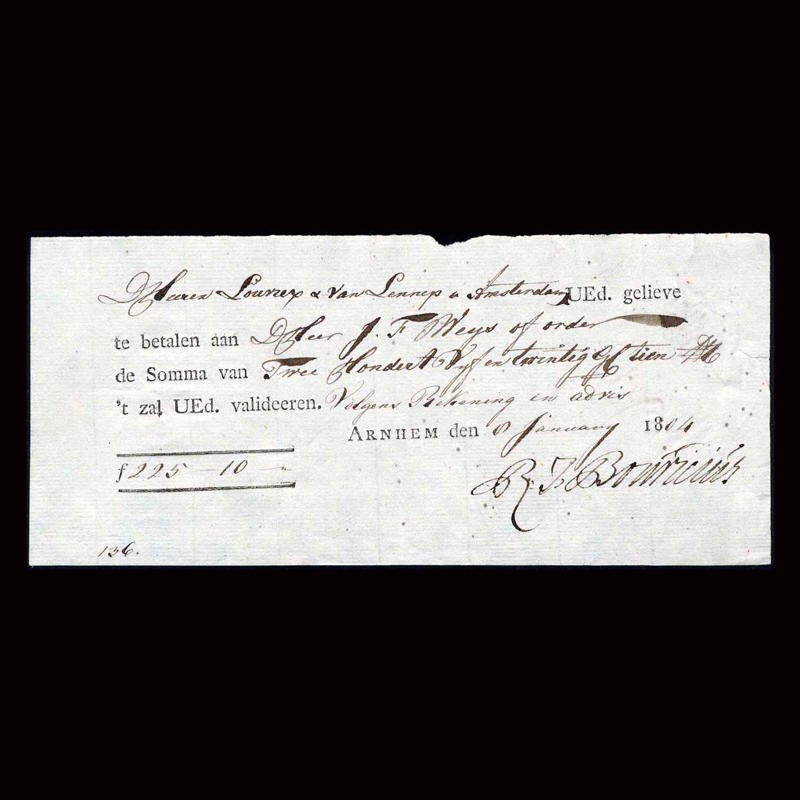 DHeeren Louvrex & van Lennep a Amsterdam, UEd. gelieve
te betalen aan DHeer J. F. Weys of order
de Somma van Twee Hondert Vyf en twintig Gl tien
't zal UEd. valideeren. Volgens Rekening en advis
ARNHEM den 8 January 1804
f 225 - 10 -
R. J. Bouricius
136.